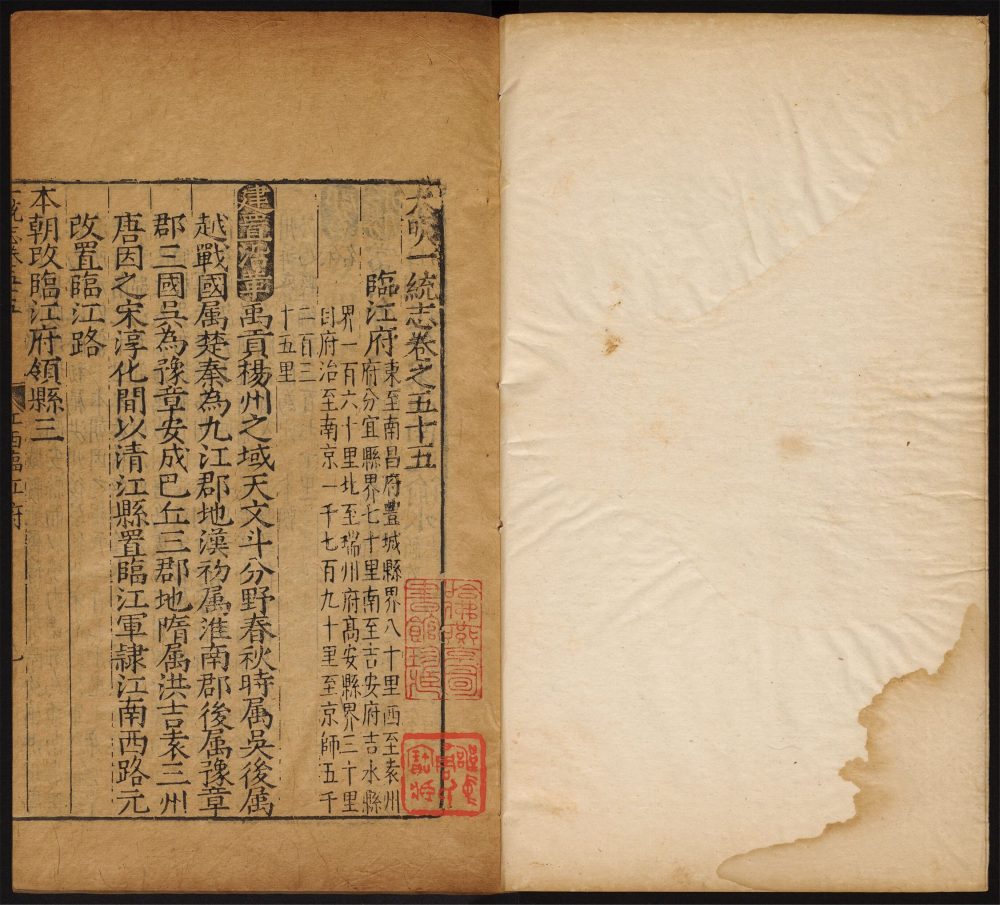 大明一統志卷之五十五
臨江府東至南昌府豐城縣界八十里西至袁州
府分宜縣界七十里南至吉安府吉水縣
界一百六十里北至瑞州府高安縣界三十里
自府治至南京一千七百九十里至京師五千
二百三
十五里
建置沿革禹貢楊州之域天文斗分野春秋時属吳後属
越戰國属楚秦為九江郡地漢初属淮南郡後属豫章
郡三國吳為豫章安成巴丘三郡地隋属洪吉袁三州
唐因之宋淳化間以清江縣置臨江軍隷江南西路元
改置臨江路
本朝改臨江府領縣三
一統志卷五十五
江西臨江府
哈佛燕京圖
書館珍藏